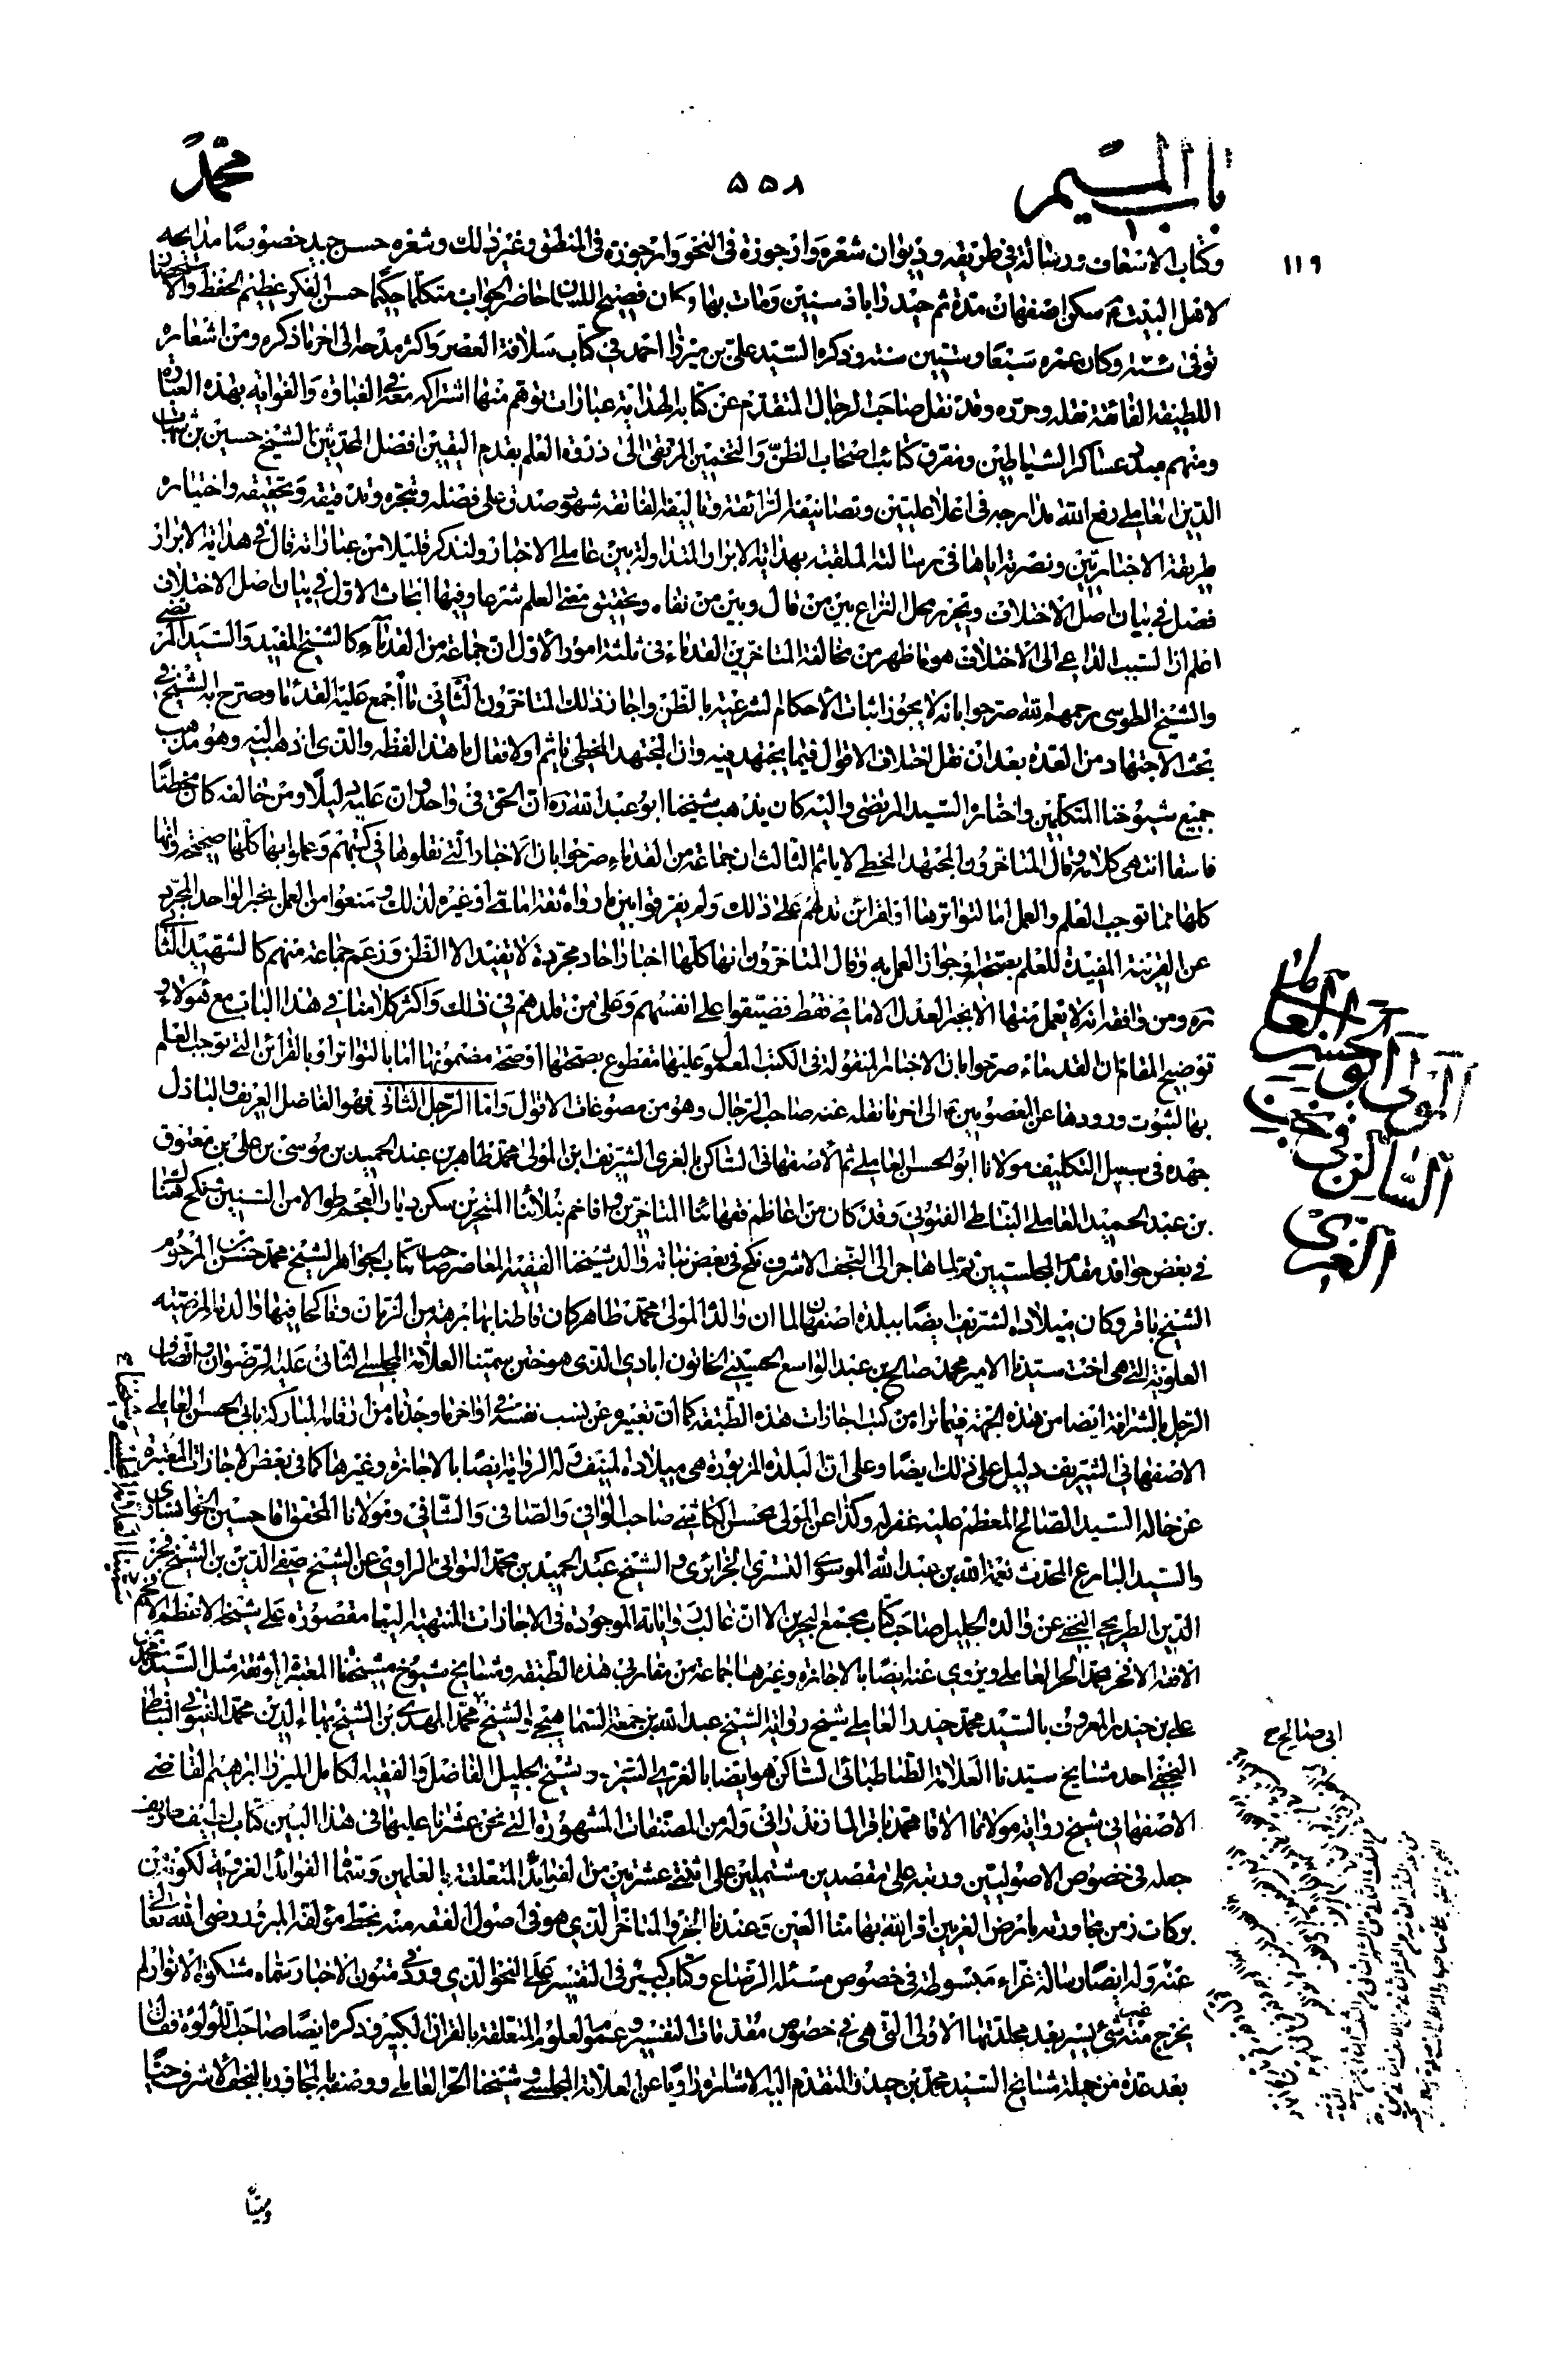 باب الميم
۵۵۸
محمّد
۱۱۹
وكتاب الاسعاف ورسالة في طريقه وديوان شعره وارجوزة في النحو وارجوزة في المنطق وغير ذلك وشعره حسن جيد خصوصًا مدايحه
لاهل البيت ع سكن اصفهان مدة ثم حيدراباد سنين ومات بها وكان فصيح اللسان حاضر الجواب متكلما حكيما حسن الفكر عظيم الحفظ والاستحضار
توفى سنة وكان عمره سبعا وستين سنة وذكره السيد علي بن ميرزا احمد في كتاب سلافة العصر واكثر مدحه الى اخر ما ذكره ومن اشعاره
اللطيفة الفائقة نقله وحرره وقد نقل صاحب الرجال المتقدم عن كتابه الهداية عبارات توهم منها اشتراكه معه في الغباوة والغواية بهذه العبارة
ومنهم مبدد عساكر الشياطين ومفرق كتائب اصحاب الظن والتخمين المرتقى الى ذروة العلم بقدم اليقين افضل المحدثين الشيخ حسين بن شهاب
الدين العاملي رفع الله مدارجه في اعلا عليين وتصانيفه الرائقة وتاليفه الفائقة شهود صدق على فضله وتبحره وتدقيقه وتحقيقه واختياره
طريقة الاخباريين ونصرته اياها في رسالته الملقبة بهداية الابرار المتداولة بين عاملي الاخبار ولنذكر قليلا من عباراته قال في هداية الابرار
فصل في بيان اصل الاختلاف وتحرير محل النزاع بين من قال وبين من نفاه وتحقيق معنى العلم شرعا وفيها ابحاث الاول في بيان اصل الاختلاف
اعلم ان السبب الداعي الى الاختلاف هو ما ظهر من مخالفة المتاخرين القدماء في ثلثة امور الأول ان جماعة من القدماء كالشيخ المفيد والسيد المرتضى
والشيخ الطوسي رحمهم الله صرحوا بانه لا يجوز اثبات الأحكام الشرعية بالظن واجاز ذلك المتاخرون الثاني ما أجمع عليه القدما وصرح به الشيخ في
بحث الاجتهاد من العدة بعد ان نقل اختلاف الاقوال فيما يجتهد فيه وان المجتهد المخطى ياثم اولا فقال ما هذا لفظه والذى اذهب اليه وهو مذهب
جميع شيوخنا المتكلمين واختاره السيد المرتضى واليه كان يذهب شيخنا ابو عبد الله ره ان الحق في واحد وان عليه دليلًا ومن خالفه كان مخطئًا
فاسقا انتهى كلامه وقال المتاخرون المجتهد المخطى لا ياثم الثالث ان جماعة من القدماء صرحوا بان الاخبار التي نقلوها في كتبهم وعملوا بها كلها صحيحة وانها
كلها مما توجب العلم والعمل اما لتواترها او لقرائن تدلهم على ذلك ولم يفرقوا بين ما رواه ثقة امامي أو غيره لذلك ومنعوا من العمل بخبر الواحد المجرد
عن القرينة المفيدة للعلم بصحته او جواز العمل به وقال المتاخرون انها كلها اخبار احاد مجردة لا تفيد الا الظن وزعم جماعة منهم كالشهيد الثاني
ره ومن وافقه انه لا يعمل منها الا بخبر العدل الامامي فقط فضيقوا على انفسهم وعلى من قلدهم في ذلك واكثر كلامنا في هذا الباب مع هولاء و
توضيح المقام ان القدماء صرحوا بان الاخبار المنقولة في الكتب المعمول عليها مقطوع بصحتها أو صحة مضمونها اما بالتواتر او بالقرائن التي توجب العلم
بها لثبوت ورودها عن المعصومين ع الى اخر ما نقله عنه صاحب الرجال وهو من مصوغات الاقوال واما الرجل الثاني فهو الفاضل العريف والباذل
جهده في سبيل التكليف مولانا ابو الحسن العاملي ثم الأصفهاني الساكن بالغري الشريف ابن المولى محمد طاهر بن عبد الحميد بن موسى بن علي بن معتوق
بن عبد الحميد العاملي النباطي الفتوني وقد كان من اعاظم فقهائنا المتاخرين وافاخم نبلائنا المتبحرين سكن ديار العجم طوالا من السنين ونكح هناك
في بعض حوافد مقدم المجلسيين ثم لما هاجر الى النجف الاشرف نكح في بعض بناته والد شيخنا الفقيه المعاصر صاحب كتاب الجواهر الشيخ محمد حسن المرحوم
الشيخ باقر وكان ميلاده الشريف ايضا ببلدة اصفهان لما ان والده المولى محمد طاهر كان قاطنا بها برهة من الزمان وناكحا فيها والدته المرضية
العلوية التي هي اخت سيدنا الامير محمد صالح بن عبد الواسع الحسيني الخاتون ابادي الذي هو ختن سمينا العلامة المجلسي الثاني عليه الرضوان واتصاف
الرجل بالشرافة ايضا من هذه الجهة فيما ترا من كتب اجازات هذه الطبقة كما ان تعبيره عن نسب نفسه في اواخر ما وجدناه من ارقامه المباركة بابي الحسن العاملي
الاصفهاني الشريف دليل على ذلك ايضا وعلى ان البلدة المزبورة هي ميلاده المنيف وله الرواية ايضا بالاجازة وغيرها كما في بعض الاجازات المعتبرة
عن خاله السيد الصالح المعظم عليه غفر له وكذا عن المولى محسن الكاشي صاحب الوافي والصافي والشافي ومولانا المحقق اقا حسين الخوانساري
والسيد البارع المحدث نعمة الله بن عبد الله الموسوي التستري الجزائري و الشيخ عبد الحميد بن محمد التواني الراوي عن الشيخ صفي الدين بن الشيخ فخر
الدين الطريحي النجفي عن والده الجليل صاحب كتاب مجمع البحرين الا ان غالب رواياته الموجودة في الاجازات المنتهية اليها مقصورة على شيخه الاعظم الافخم
الافقه الافخر محمد الحر العاملي ويروي عنه ايضا بالاجازة وغيرها جماعة من مقاربي هذه الطبقة ومشايخ شيوخ مشيختنا المعتبرة الوثقة مثل السيد محمد بن
علي بن حيدر المعروف بالسيد محمد حيدر العاملي شيخ رواية الشيخ عبد الله بن جمعة السماهيجي والشيخ محمد المهدي بن الشيخ بهاء الدين محمد الفتوني النباطي
النجفي احد مشايخ سيدنا العلامة الطباطبائي الساكن هو ايضا بالغري السري و شيخ الجليل الفاضل والفقيه الكامل الميرزا ابراهيم القاضي
الاصفهاني شيخ رواية مولانا الاقا محمد باقر المازندراني وله من المصنفات المشهورة التي نحن عثرنا عليها في هذا البين كتاب لطيف طريف
جعله في خصوص الاصوليين ورتبه على مقصدين مشتملين على اثنتي عشرتين من الفوايد المتعلقة بالعلمين وسمّاها الفوائد الغروية لكونه من
بركات زمن مجاورته بارض الغريين اقر الله بها منا العين وعندنا الجزو المتاخر الذي هو في اصول الفقه منه بخط مؤلفه المبرور رضي الله تعالى
عنه وله ايضا رسالة غراء مبسوطة في خصوص مسئلة الرضاع وكتاب كبير في التفسير على النحو الذي ورد في متون الاخبار سماه مشكوة الانوار لم
يخرج منه غير شئ يسير بعد مجلدتها الاولى التي هي في خصوص مقدمات التفسير وعموم العلوم المتعلقة بالقران الكبير وذكره ايضا صاحب اللؤلؤة فقال
بعد عدة من جملة مشايخ السيد محمد بن حيدر المتقدم اليه الاشارة راويا عن العلامة المجلسي وشيخنا الحر العاملي ووصفه بالمجاور بالنجف الأشرف حيًا
وميتًا
المولى ابو الحسن العاملي
الساكن في نجف
الغري
ابى صالح